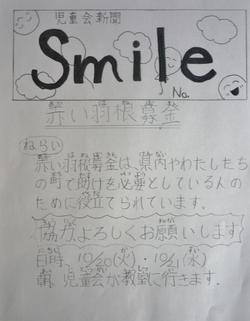 児童会新聞
Smile
No.
赤い羽根募金
ねらい
赤い羽根募金は、県内やわたしたち
の町で助けを必要としている人の
ために役立てられています。
協力よろしくお願いします
日時、10/20(火)・10/21(水)
朝、児童会が教室に行きます。